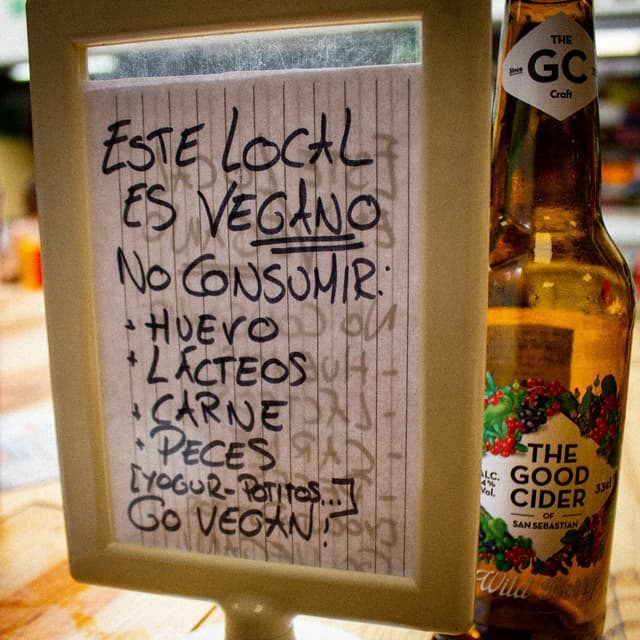 ESTE LOCAL
ES VEGANO
NO CONSUMIR:
· HUEVO
· LÁCTEOS
· CARNE
· PECES
[YOGUR-POTITOS...]
GO VEGAN!
THE
GC
Craft
THE
GOOD
CIDER
OF
SAN SEBASTIAN
ALC.
4%
Vol.
33cl
Wild